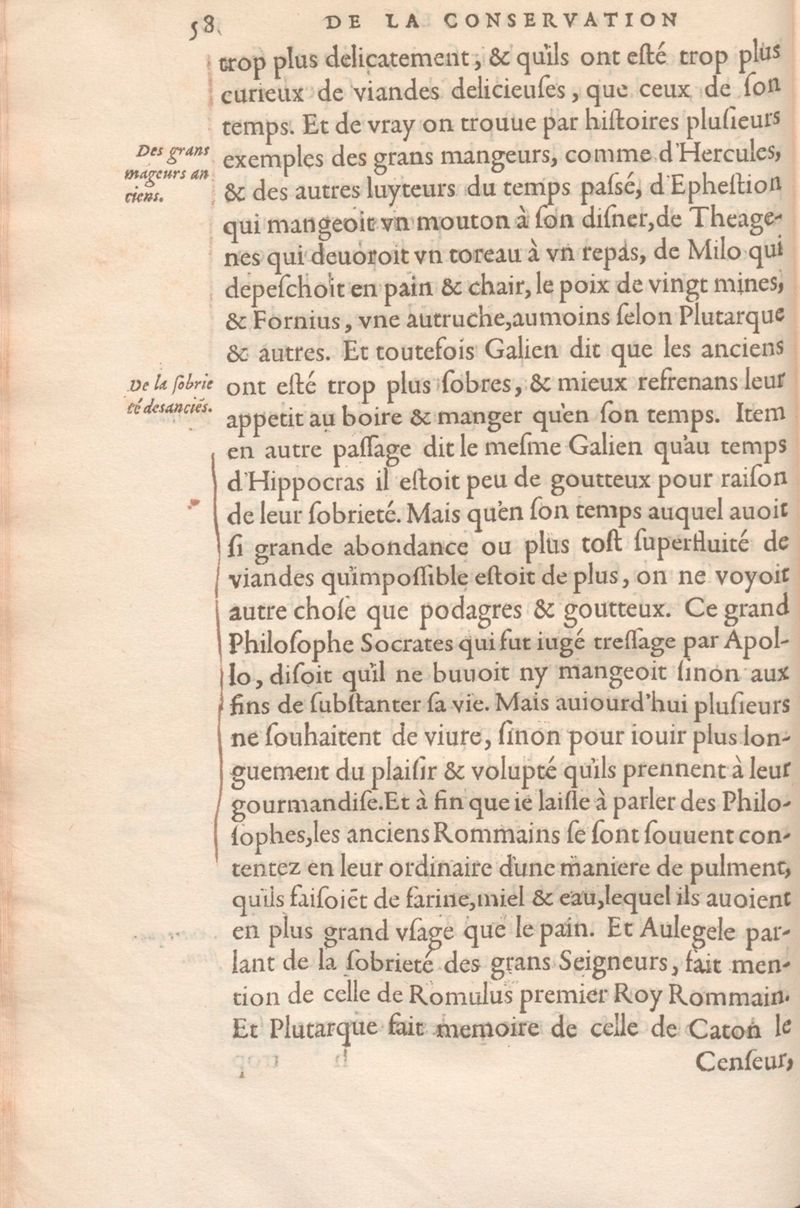 58. DE LA CONSERVATION
trop plus delicatement, & qu'ils ont eſté trop plus
curieux de viandes delicieuſes, que ceux de ſon
temps. Et de vray on trouue par hiſtoires pluſieurs
Des grans
mageurs an
ciens.
exemples des grans mangeurs, comme d'Hercules,
& des autres luyteurs du temps paſsé, d'Epheſtion
qui mangeoit vn mouton à ſon diſner, de Theage-
nes qui deuoroit vn toreau à vn repas, de Milo qui
depeſchoit en pain & chair, le poix de vingt mines,
& Fornius, vne autruche, aumoins ſelon Plutarque
& autres. Et toutefois Galien dit que les anciens
De la ſobrie
té des anciés.
ont eſté trop plus ſobres, & mieux refrenans leur
appetit au boire & manger qu'en ſon temps. Item
en autre paſſage dit le meſme Galien qu'au temps
d'Hippocras il eſtoit peu de goutteux pour raiſon
de leur ſobrieté. Mais qu'en ſon temps auquel auoit
ſi grande abondance ou plus toſt ſuperfluité de
viandes qu'impoſſible eſtoit de plus, on ne voyoit
autre choſe que podagres & goutteux. Ce grand
Philoſophe Socrates qui fut iugé treſſage par Apol-
lo, diſoit qu'il ne buuoit ny mangeoit ſinon aux
fins de ſubſtanter ſa vie. Mais auiourd'hui pluſieurs
ne ſouhaitent de viure, ſinon pour iouir plus lon-
guement du plaiſir & volupté qu'ils prennent à leur
gourmandiſe. Et à fin que ie laiſſe à parler des Philo-
ſophes, les anciens Rommains ſe ſont ſouuent con-
tentez en leur ordinaire d'une maniere de pulment,
qu'ils faiſoiẽt de farine, miel & eau, lequel ils auoient
en plus grand vſage que le pain. Et Aulegele par-
lant de la ſobrieté des grans Seigneurs, fait men-
tion de celle de Romulus premier Roy Rommain.
Et Plutarque fait memoire de celle de Caton le
Cenſeur,